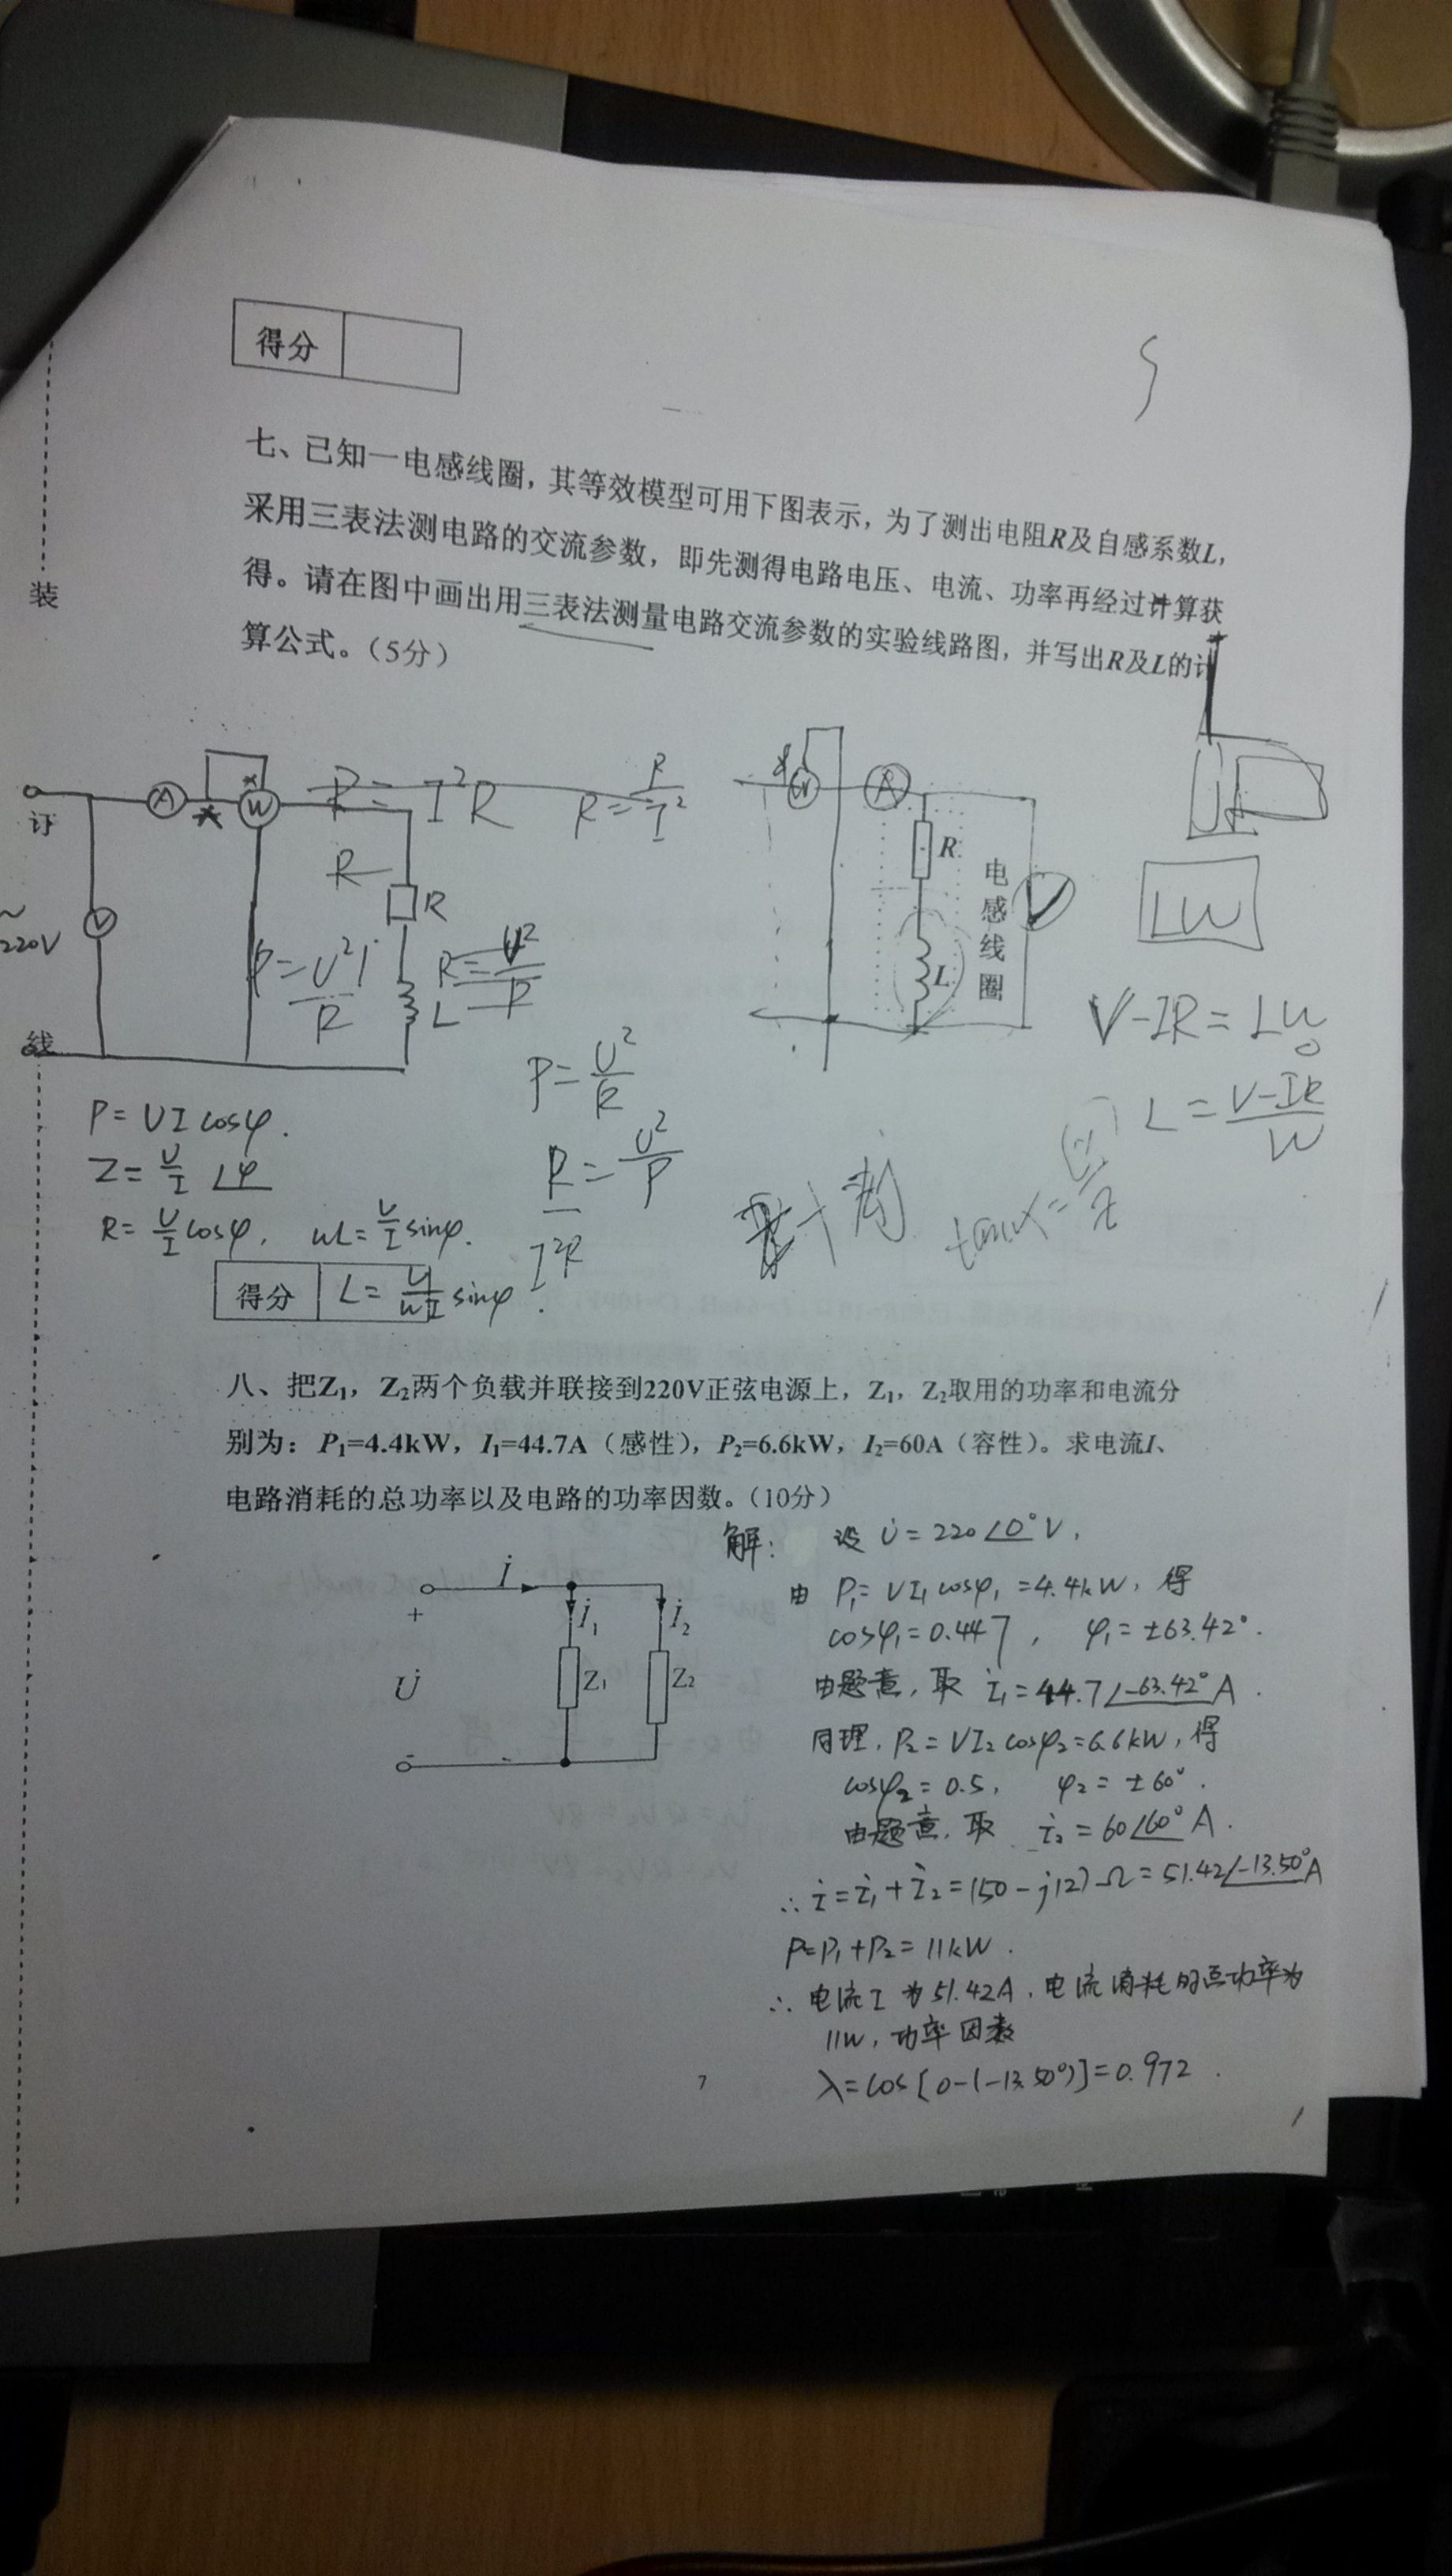 得分
七、已知一电感线圈，其等效模型可用下图表示，为了测出电阻R及自感系数L，
采用三表法测电路的交流参数，即先测得电路电压、电流、功率再经过计算获
得。请在图中画出用三表法测量电路交流参数的实验线路图，并写出R及L的计
算公式。（5分）
装
订
线
A
*
*
W
P = I²R
R = P/I²
R
R
L
V
~
220V
P = U²/R
R = U²/P
W
A
R
L
电感线圈
V
LW
V-IR = LW
L = (V-IR)/W
P = U²/R
R = U²/P
I²R
P = UI cosφ.
Z = U/I ∠φ
R = U/I cosφ, ωL = U/I sinφ.
得分
L = U/ωI sinφ.
八、把Z₁，Z₂两个负载并联接到220V正弦电源上，Z₁，Z₂取用的功率和电流分
别为：P₁=4.4kW，I₁=44.7A（感性），P₂=6.6kW，I₂=60A（容性）。求电流I、
电路消耗的总功率以及电路的功率因数。（10分）
İ
+
U̇
-
İ₁
İ₂
Z₁
Z₂
解: 设 U̇ = 220∠0° V,
由 P₁ = UI₁cosφ₁ = 4.4kW, 得
cosφ₁ = 0.447, φ₁ = ±63.42°.
由题意, 取 İ₁ = 44.7∠-63.42° A.
同理, P₂ = UI₂cosφ₂ = 6.6kW, 得
cosφ₂ = 0.5, φ₂ = ±60°.
由题意, 取 İ₂ = 60∠60° A.
∴ İ = İ₁ + İ₂ = (50 - j12) Ω = 51.42∠-13.50° A
P = P₁ + P₂ = 11kW.
∴ 电流I为51.42A, 电流消耗的总功率为
11W, 功率因数
λ = cos[0-(-13.50°)] = 0.972.
7